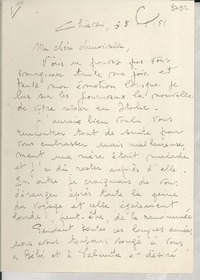 Chiavari, 23
51
Ma chère demoiselle,
Vous ne pouvez pas vous
imaginer toute ma joie et
toute mon émotion lorsque je
lus sur les journaux la nouvelle
de votre retour en Italie.
J'aurais bien voulu vous
rencontrer tout de suite pour
vous embrasser mais malheureuse
ment ma mère était malade
et j'ai dû rester auprès d'elle.
En outre je craignais de vous
déranger après toute la peine
du voyage et celle, également
lourde, peut-être, de la renommée
Pendant toutes ces longues années
nous avons toujours songé à vous
à Bebi et à Palmita et désiré